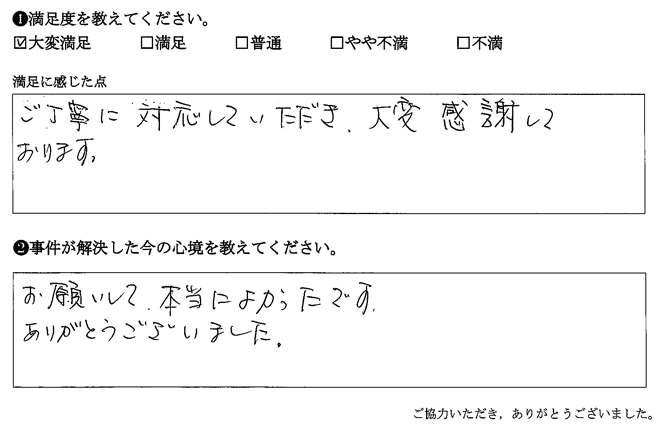 ❶満足度を教えてください。
☑大変満足 □満足 □普通 □やや不満 □不満
満足に感じた点
ご丁寧に対応していただき、大変感謝して
おります。
❷事件が解決した今の心境を教えてください。
お願いして、本当によかったです。
ありがとうございました。
ご協力いただき，ありがとうございました。